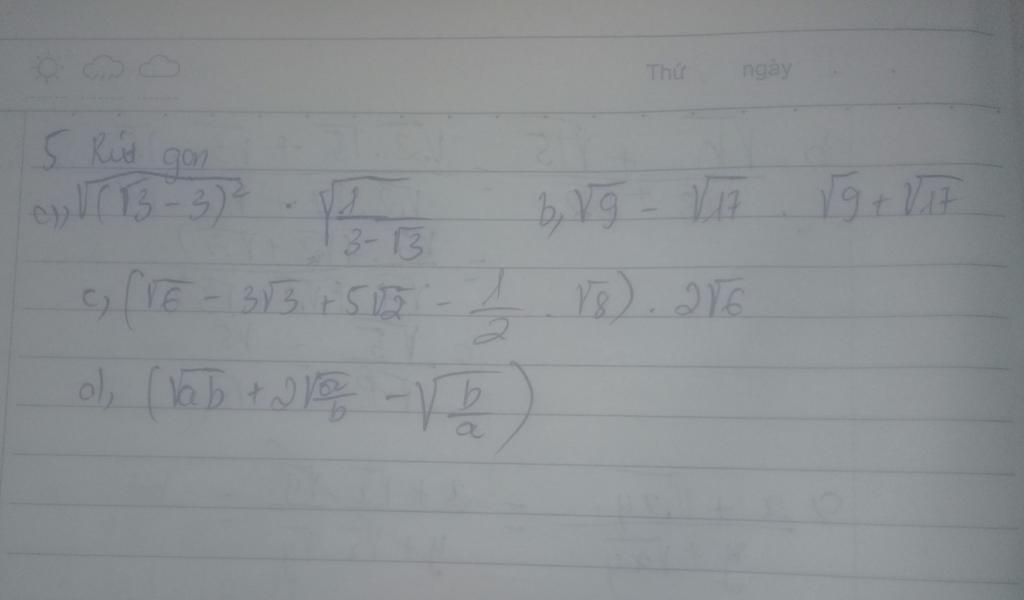 Thứ ngày
5 Rút gọn
a), √(√3 - 3)² . √(1/(3-√3)) b, √9 - √17 . √9 + √17
c, (√6 - 3√3 + 5√2 - 1/2 . √8) . 2√6
d), (√ab + 2√(a/b) - √(b/a))